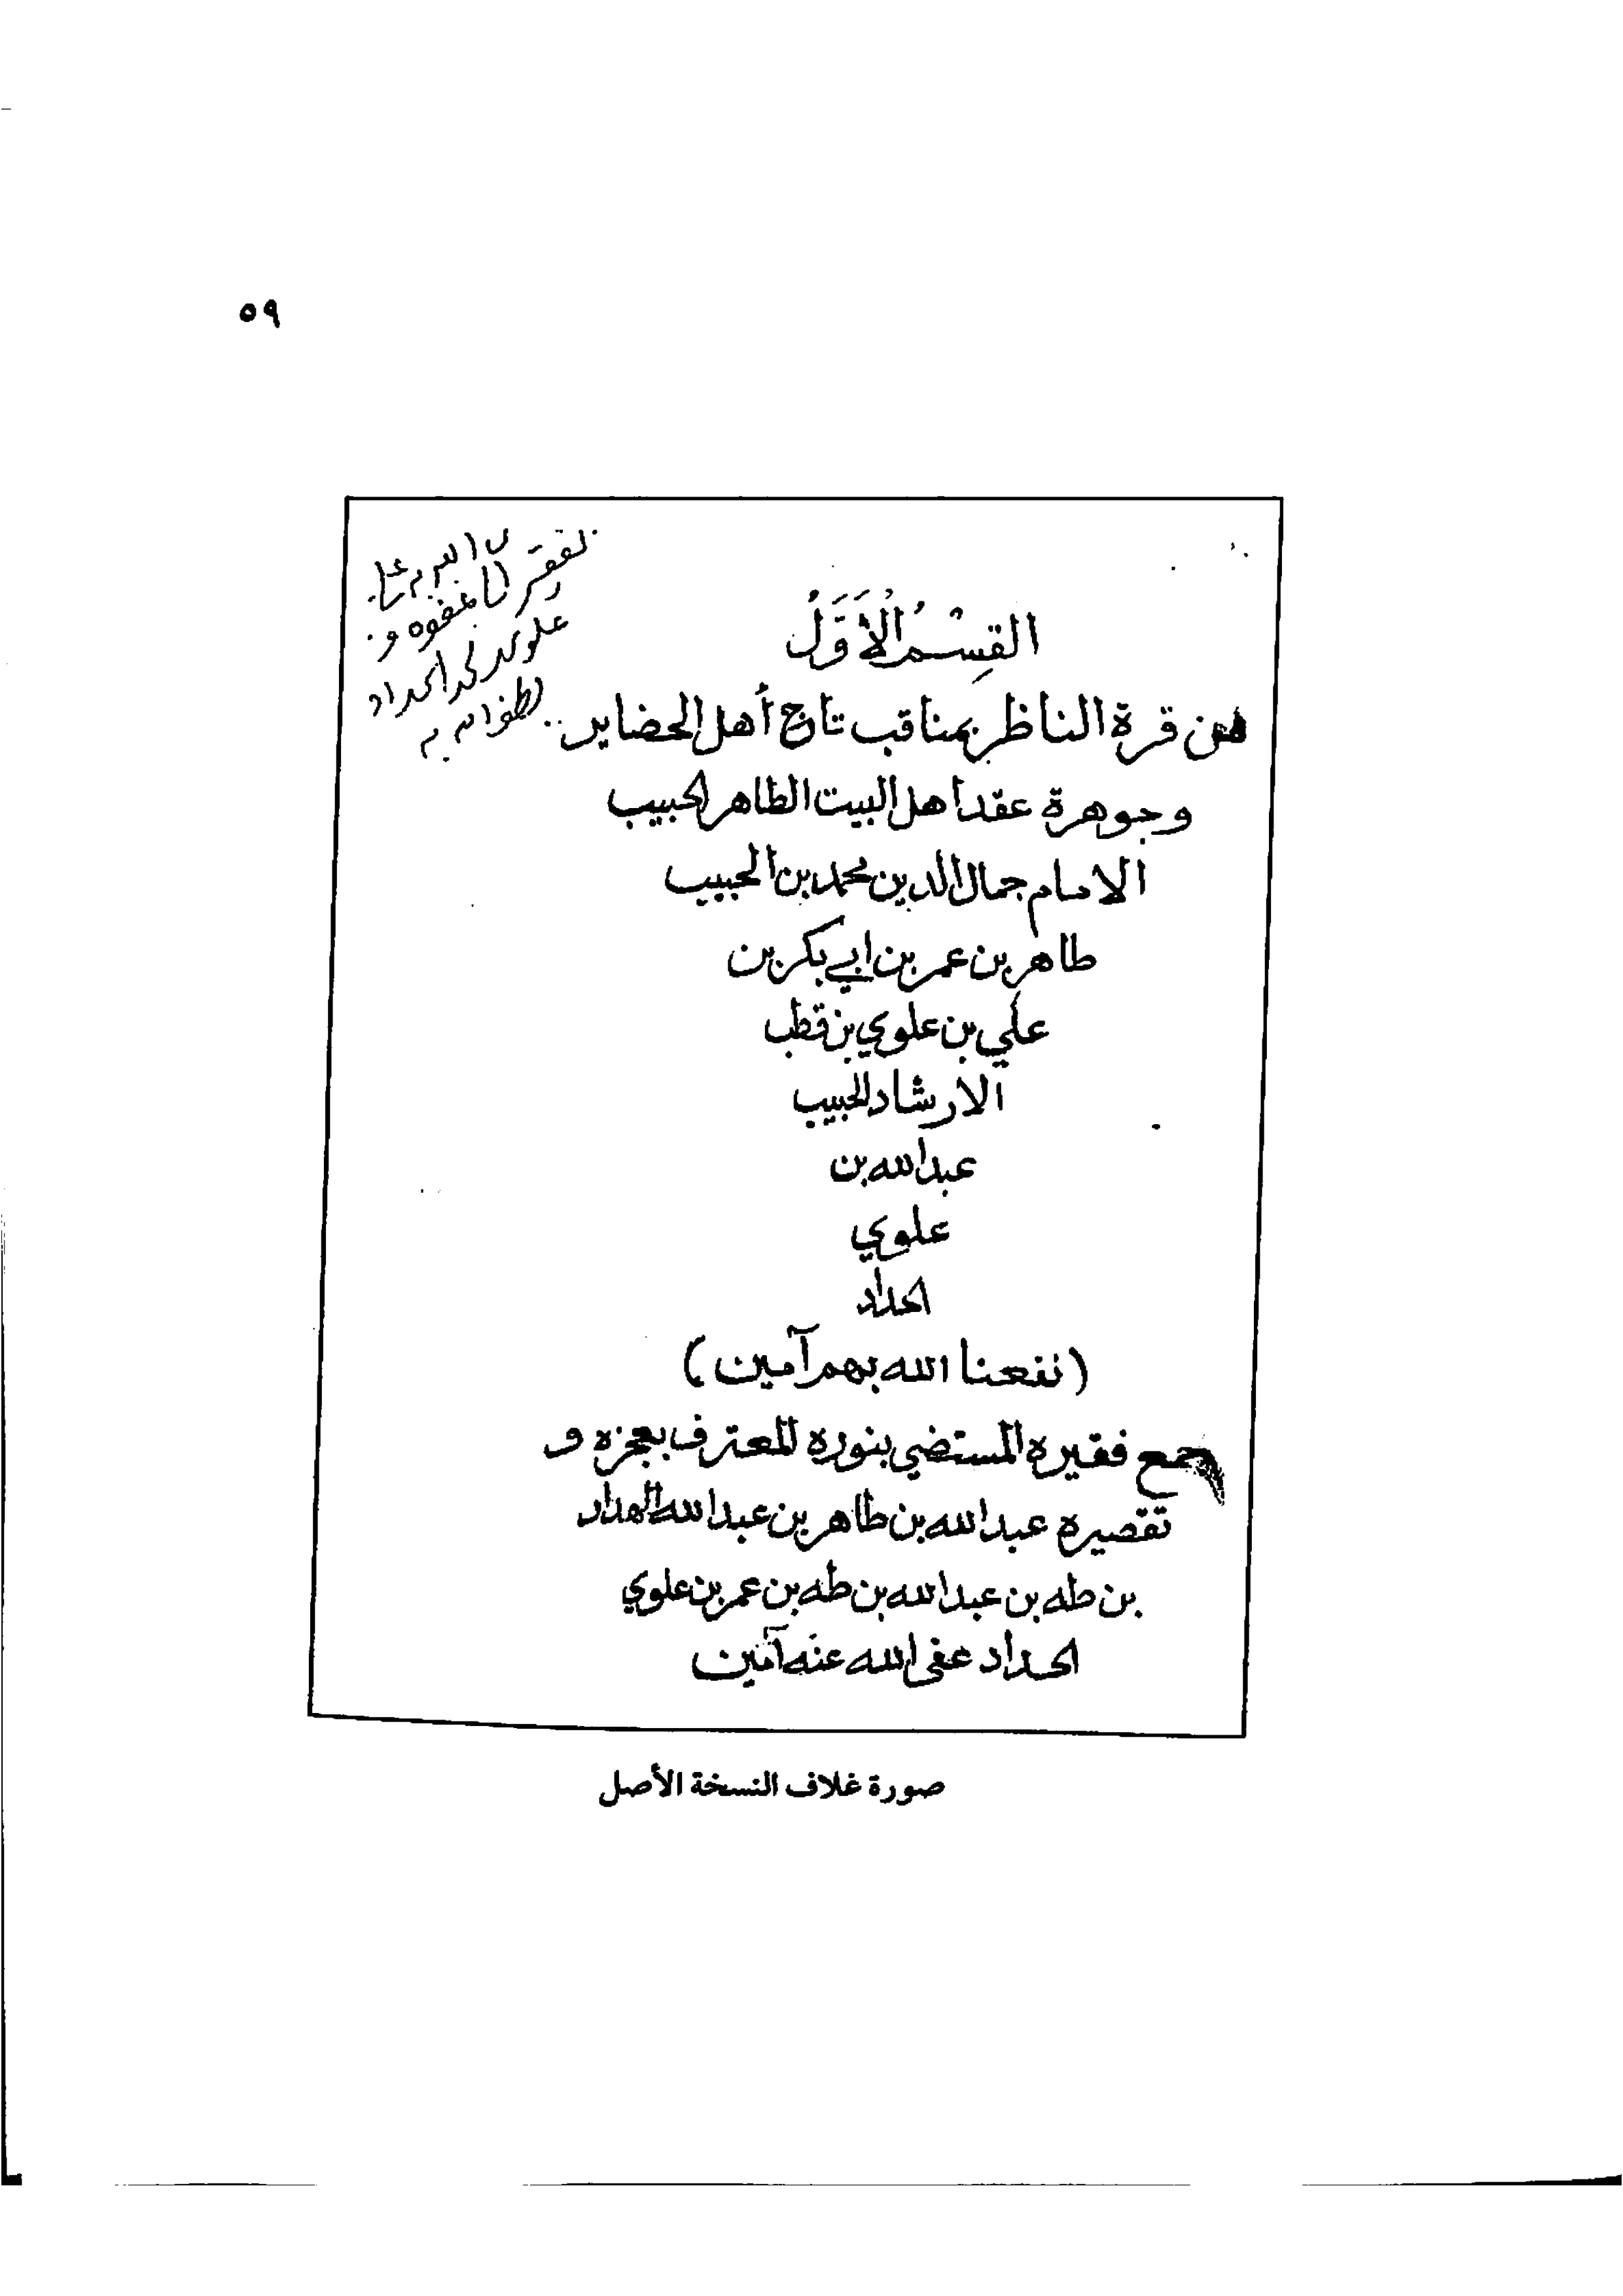 ٥٩
القِسْمُ الْأَوَّلُ
من قرة الناظر بمناقب تاج أهل الحضاير
وجوهرة عقد أهل البيت الطاهر الحبيب
الامام جمال الدين محمد بن الحبيب
طاهر بن عمر بن ابي بكر بن
علي بن علوي بن قطب
الارشاد الحبيب
عبد الله بن
علوي
الحداد
(نفعنا الله بهم آمين)
جمع فقيره المستضي بنوره المعترف بعجزه و
تقصيره عبد الله بن طاهر بن عبد الله الهدار
بن طه بن عبد الله بن طه بن عمر بن علوي
الحداد عفى الله عنه آمين
علوي بن محمد الحداد
لطف الله به
صورة غلاف النسخة الأصل